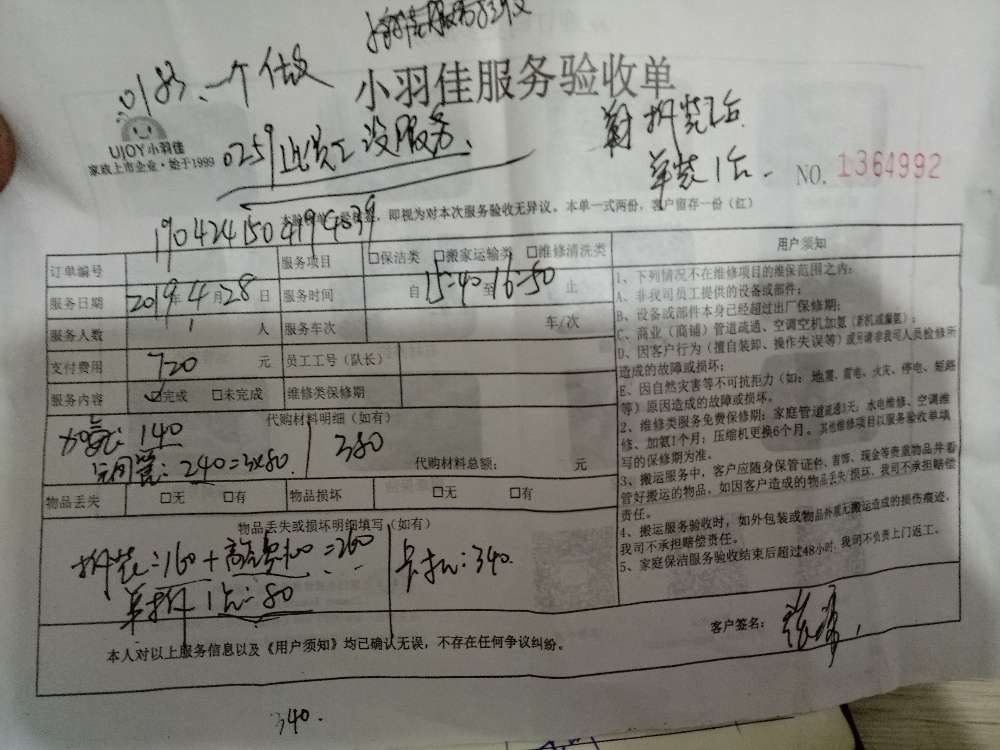 0183、一个做
小羽佳服务验收单
UJOY小羽佳
家政上市企业·始于1999
0259此员工没服务、
单装1台.
NO. 1364992
即视为对本次服务验收无异议。本单一式两份,客户留存一份(红)
订单编号
服务项目 □保洁类 □搬家运输类 □维修清洗类
服务日期 2019年4月28日 服务时间 自15:40至16:50止
服务人数 1 人 服务车次 车/次
支付费用 720 元 员工工号(队长)
服务内容 ☑完成 □未完成 维修类保修期
代购材料明细(如有)
加氨:140
铜管:240=3x80. 380
代购材料总额: 元
物品丢失 □无 □有 物品损坏 □无 □有
物品丢失或损坏明细填写(如有)
拆装:160+高空费100=260
单拆1台:80
340.
用户须知
1、下列情况不在维修项目的维保范围之内:
A、非我司员工提供的设备或部件;
B、设备或部件本身已经超过出厂保修期;
C、商业(商铺)管道疏通、空调空机加氨(新机或漏氨);
D、因客户行为(擅自装卸、操作失误等)或另请非我司人员检修所
造成的故障或损坏;
E、因自然灾害等不可抗拒力(如:地震、雷电、火灾、停电、短路
等)原因造成的故障或损坏。
2、维修类服务免费保修期:家庭管道疏通3天;水电维修、空调维
修、加氨1个月;压缩机更换6个月。其他维修项目以服务验收单填
写的保修期为准。
3、搬运服务中,客户应随身保管证件、首饰、现金等贵重物品并看
管好搬运的物品,如因客户造成的物品丢失/损坏,我司不承担赔偿
责任。
4、搬运服务验收时,如外包装或物品外观无搬运造成的损伤痕迹,
我司不承担赔偿责任。
5、家庭保洁服务验收结束后超过48小时,我司不负责上门返工。
客户签名:
本人对以上服务信息以及《用户须知》均已确认无误,不存在任何争议纠纷。
340.